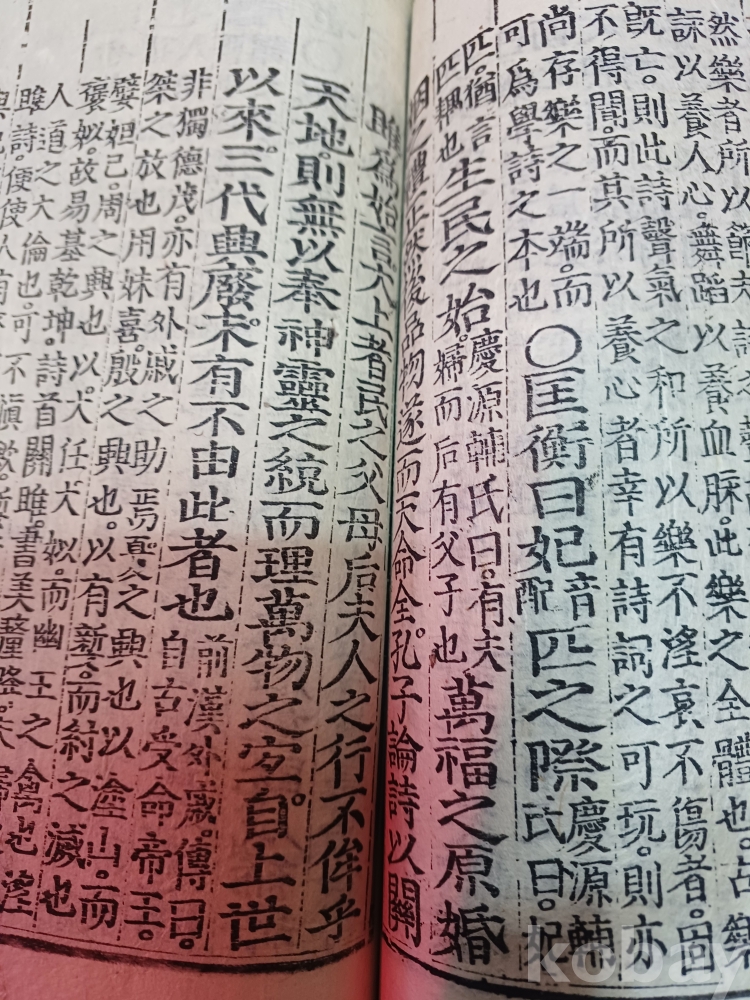 然樂者所以節
詠以養人心。舞蹈以養血脈。此樂之全體也。古樂
旣亡。則此詩聲氣之和所以樂不淫哀不傷者。固
不得聞。而其所以養心者幸有詩詞之可玩。則亦
尚存樂之一端。而
可爲學詩之本也
○匡衡曰妃音配匹之際慶源輔氏曰。妃
匹。猶言匹耦也生民之始慶源輔氏曰。有夫婦而后有父子也萬福之原婚
姻之禮正然後品物遂而天命全孔子論詩以關
雎爲始言大上者民之父母后夫人之行不侔乎
天地則無以奉神靈之統而理萬物之宜自上世
以來三代興廢未有不由此者也前漢外戚傳曰。自古受命帝王。
非獨德茂。亦有外戚之助焉。夏之興也以塗山。而
桀之放也用妹喜。殷之興也。以有而紂之滅也
嬖妲己。周之興也。以大任大姒。而幽王之禽也淫
褒姒。故易基乾坤。詩首關雎。書美釐降。夫
人道之大倫也。可不愼歟。
雎詩。便使人有